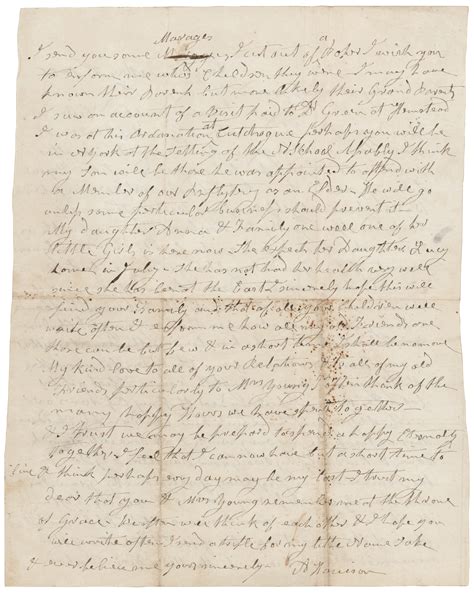 Marages
I send you some I cut out of a Paper I wish you
to inform me whos Children they were I may have
known their Parents but more likely their Grand Parents
I saw an account of a Visit paid to Dr Green at
I was at his Ordanation at Cutchogue perhaps you will be
in N York at the of the N School I think
my Son will be there he was appointed to attend with
the Member of our Presbytery as an Elder He will go
unless some perticular business should prevent it
My daughter Anna & Family one well one of her
little Girls is here now She expects her Daughter Lucy
home in July She has not had her health very well
since she the East I sincerely hope this will
find your Family and that of all your Children well
write often & me how all my old Friends are
there can be but few & in a short time I shall be no more
My kind love to all of your Relations & all of my old
Friends perticularly to Mrs Young I often think of the
many happy Hours we have spent together
& I trust we may be prepared to spend a happy Eternity
together I feel that I can now have but a short time to
live & think perhaps every day may be my last I trust my
dear that you & Mrs Young remember me at the throne
of Grace we often think of each other & I hope you
will write often for my little Name Sake
& believe me yours sincerely Harrison